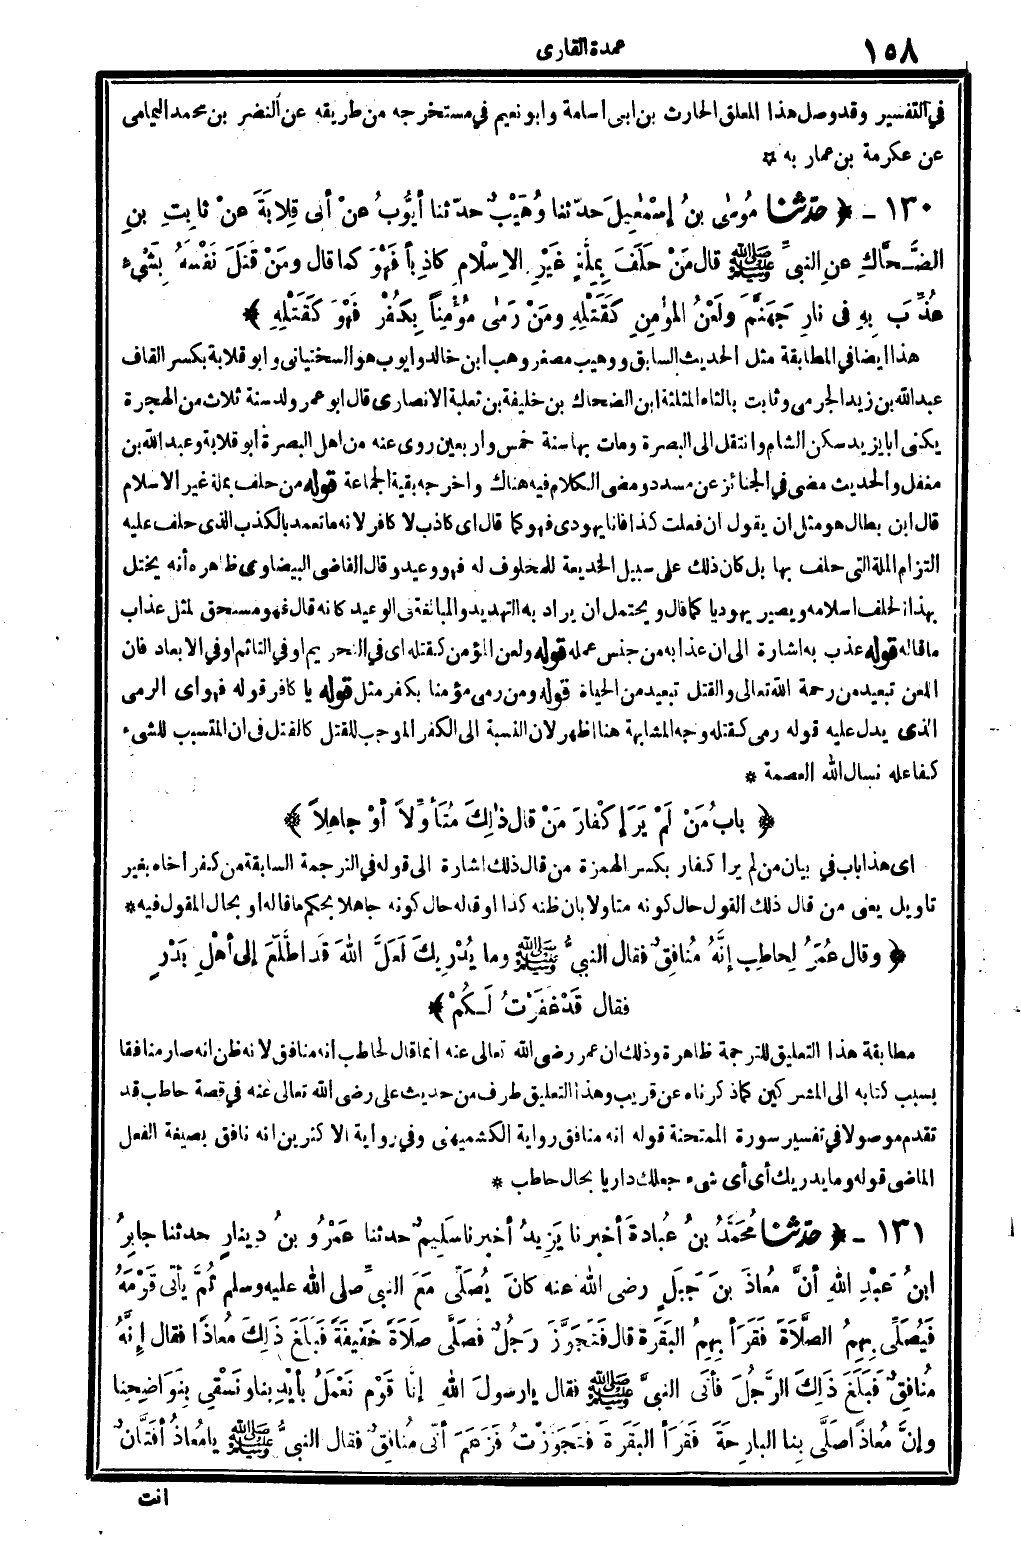 ١٥٨
عمدة القارى
في التفسير وقد وصل هذا المعلق الحارث بن ابى أسامة وابو نعيم في مستخرجه من طريقه عن النضر بن محمد اليمامى
عن عكرمة بن عمار به ☆
١٣٠ - ﴿ حدّثنا مُوسٰى بنُ إسْمٰعِيلَ حدّثنا وُهَيْبٌ حدّثنا أيُّوبُ عنْ أبى قِلابَةَ عنْ ثابِتِ بنِ
الضَّحَّاكِ عنِ النبىِّ ﷺ قال مَنْ حلَفَ بِمِلَّةٍ غَيْرِ الإسْلامِ كاذِباً فَهْوَ كما قال ومَنْ قتَلَ نَفْسَهُ بِشَىْءٍ
عُذِّبَ بِهِ فى نارِ جَهَنَّمَ ولَعْنُ المُؤْمِنِ كَقَتْلِهِ ومَنْ رَمٰى مُؤْمِناً بِكُفْرٍ فَهْوَ كَقَتْلِهِ ﴾
هذا ايضا في المطابقة مثل الحديث السابق ووهيب مصغر وهب ابن خالد وايوب هو السختيانى وابو قلابة بكسر القاف
عبدالله بن زيد الجرمى وثابت بالثاء المثلثة ابن الضحاك بن خليفة بن ثعلبة الانصارى قال ابو عمر ولد سنة ثلاث من الهجرة
يكنى ابا يزيد سكن الشام وانتقل الى البصرة ومات بها سنة خمس واربعين روى عنه من اهل البصرة ابو قلابة وعبدالله بن
مغفل والحديث مضى في الجنائز عن مسدد ومضى الكلام فيه هناك واخرجه بقية الجماعة قوله من حلف بملة غير الاسلام
قال ابن بطال هو مثل ان يقول ان فعلت كذا فانا يهودى فهو كما قال اى كاذب لا كافر لانه ما تعمد بالكذب الذى حلف عليه
التزام الملة التى حلف بها بل كان ذلك على سبيل الخديعة للمحلوف له فهو وعيد وقال القاضى البيضاوى ظاهره أنه يختل
بهذا الحلف اسلامه ويصير يهوديا كما قال ويحتمل ان يراد به التهديد والمبالغة فى الوعيد كانه قال فهو مستحق لمثل عذاب
ما قاله قوله عذب به اشارة الى ان عذابه من جنس عمله قوله ولعن المؤمن كقتله اى في التحريم او في التاثم او في الابعاد فان
اللعن تبعيد من رحمة الله تعالى والقتل تبعيد من الحياة قوله ومن رمى مؤمنا بكفر مثل قوله يا كافر قوله فهو اى الرمى
الذى يدل عليه قوله رمى كقتله وجه المشابهة هنا اظهر لان النسبة الى الكفر الموجب للقتل كالقتل فى ان المتسبب للشىء
كفاعله نسال الله العصمة *
﴿ بابُ مَنْ لَمْ يَرَ إكْفارَ مَنْ قال ذٰلِكَ مُتَأوِّلاً أوْ جاهِلاً ﴾
اى هذا باب في بيان من لم ير اكفار بكسر الهمزة من قال ذلك اشارة الى قوله في الترجمة السابقة من كفر أخاه بغير
تاويل يعنى من قال ذلك القول حال كونه متاولا بان ظنه كذا او قاله حال كونه جاهلا بحكم ما قاله او بحال المقول فيه *
﴿ وقال عُمَرُ لِحاطِبٍ إنَّهُ مُنافِقٌ فقال النبىُّ ﷺ وما يُدْرِيكَ لَعلَّ اللهَ قَدِ اطَّلَعَ إلى أهْلِ بَدْرٍ
فقال قَدْ غفَرْتُ لَكُمْ ﴾
مطابقة هذا التعليق للترجمة ظاهرة وذلك ان عمر رضى الله تعالى عنه انما قال لحاطب انه منافق لانه ظن انه صار منافقا
بسبب كتابه الى المشركين كما ذكرناه عن قريب وهذا التعليق طرف من حديث على رضى الله تعالى عنه في قصة حاطب قد
تقدم موصولا في تفسير سورة الممتحنة قوله انه منافق رواية الكشميهنى وفي رواية الاكثرين انه نافق بصيغة الفعل
الماضى قوله وما يدريك أى أى شىء جعلك داريا بحال حاطب *
١٣١ - ﴿ حدّثنا مُحَمَّدُ بنُ عُبادةَ أخبرنا يَزِيدُ أخبرنا سَلِيمٌ حدثنا عَمْرُو بنُ دِينارٍ حدثنا جابِرُ
ابنُ عَبْدِ اللهِ أنَّ مُعاذَ بنَ جَبَلٍ رضى الله عنه كانَ يُصَلِّى مَعَ النبىِّ صلى الله عليه وسلم ثُمَّ يأتى قَوْمَهُ
فَيُصَلِّى بِهِمُ الصَّلاةَ فَقَرَأ بِهِمُ البَقَرَةَ قال فَتَجَوَّزَ رَجُلٌ فصَلَّى صَلاةً خَفِيفَةً فَبَلَغَ ذٰلِكَ مُعاذًا فقال إنَّهُ
مُنافِقٌ فَبلَغَ ذٰلِكَ الرَّجُلَ فأتى النبىَّ ﷺ فقال يا رسولَ اللهِ إنّا قَوْمٌ نَعْمَلُ بأيْدِينا ونَسْقِى بِنَواضِحِنا
وإنَّ مُعاذًا صَلَّى بِنا البارِحَةَ فَقَرَأ البَقَرَةَ فَتَجَوَّزْتُ فَزَعَمَ أنِّى مُنافِقٌ فقال النبىُّ ﷺ يا مُعاذُ أفَتَّانٌ
انت